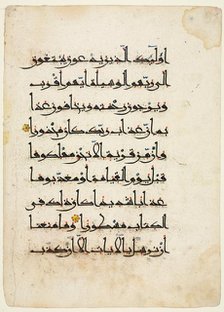 اولئك الذين يدعون يبتغون
الى ربهم الوسيلة ايهم اقرب
ويرجون رحمته ويخافون عذا
به ان عذاب ربك كان محذورا
وان من قرية الا نحن مهلكوها
قبل يوم القيامة او معذبوها
عذابا شديدا كان ذلك في
الكتاب مسطورا وما منعنا
ان نرسل بالايات الا ان كذب